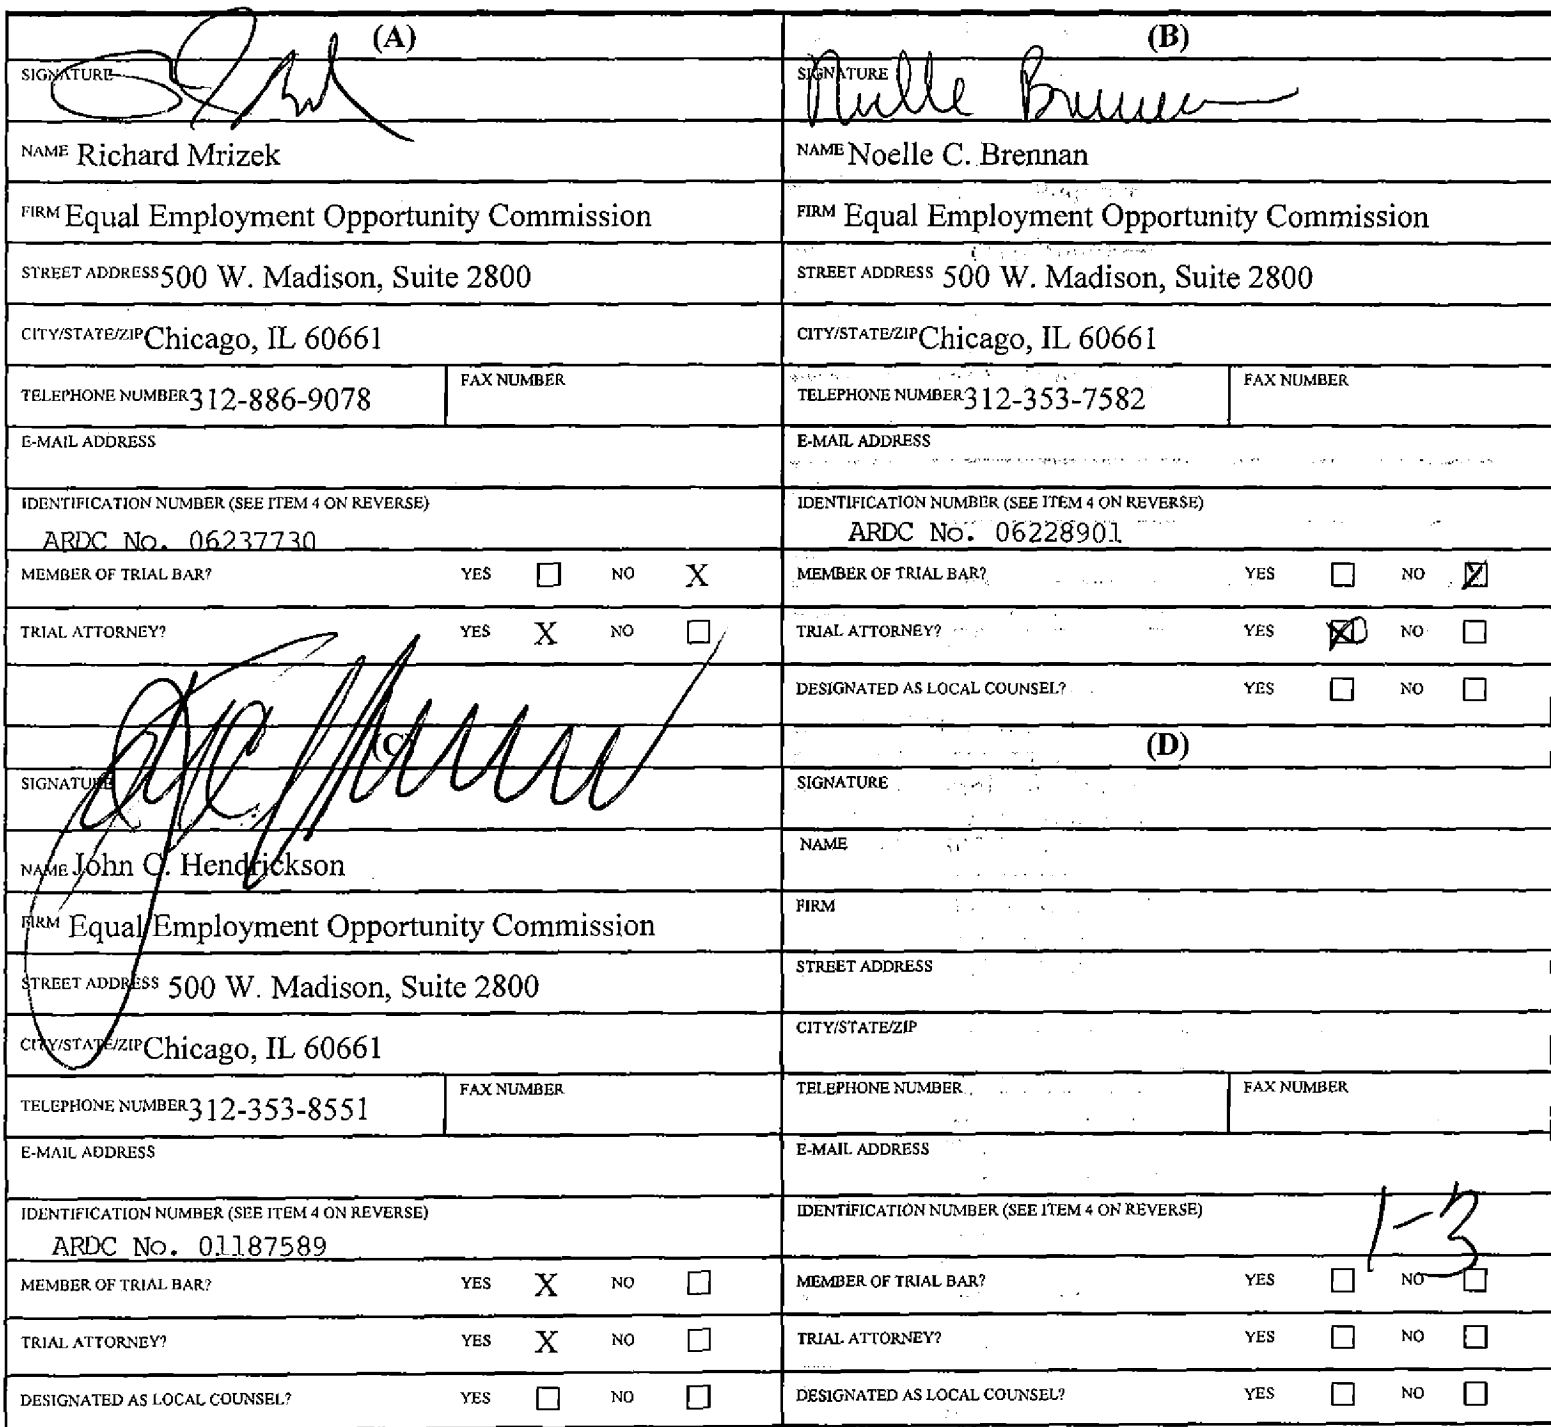 (A)
SIGNATURE
NAME Richard Mrizek
FIRM Equal Employment Opportunity Commission
STREET ADDRESS 500 W. Madison, Suite 2800
CITY/STATE/ZIP Chicago, IL 60661
TELEPHONE NUMBER 312-886-9078 FAX NUMBER
E-MAIL ADDRESS
IDENTIFICATION NUMBER (SEE ITEM 4 ON REVERSE)
ARDC No. 06237730
MEMBER OF TRIAL BAR? YES ☐ NO X
TRIAL ATTORNEY? YES X NO ☐
(B)
SIGNATURE Noelle Brennan
NAME Noelle C. Brennan
FIRM Equal Employment Opportunity Commission
STREET ADDRESS 500 W. Madison, Suite 2800
CITY/STATE/ZIP Chicago, IL 60661
TELEPHONE NUMBER 312-353-7582 FAX NUMBER
E-MAIL ADDRESS
IDENTIFICATION NUMBER (SEE ITEM 4 ON REVERSE)
ARDC No. 06228901
MEMBER OF TRIAL BAR? YES ☐ NO ☒
TRIAL ATTORNEY? YES ☒ NO ☐
DESIGNATED AS LOCAL COUNSEL? YES ☐ NO ☐
(C)
SIGNATURE
NAME John C. Hendrickson
FIRM Equal Employment Opportunity Commission
STREET ADDRESS 500 W. Madison, Suite 2800
CITY/STATE/ZIP Chicago, IL 60661
TELEPHONE NUMBER 312-353-8551 FAX NUMBER
E-MAIL ADDRESS
IDENTIFICATION NUMBER (SEE ITEM 4 ON REVERSE)
ARDC No. 01187589
MEMBER OF TRIAL BAR? YES X NO ☐
TRIAL ATTORNEY? YES X NO ☐
DESIGNATED AS LOCAL COUNSEL? YES ☐ NO ☐
(D)
SIGNATURE
NAME
FIRM
STREET ADDRESS
CITY/STATE/ZIP
TELEPHONE NUMBER FAX NUMBER
E-MAIL ADDRESS
IDENTIFICATION NUMBER (SEE ITEM 4 ON REVERSE)
1-3
MEMBER OF TRIAL BAR? YES ☐ NO ☐
TRIAL ATTORNEY? YES ☐ NO ☐
DESIGNATED AS LOCAL COUNSEL? YES ☐ NO ☐